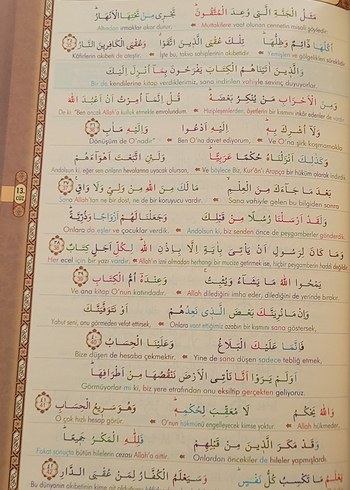 مَثَلُ الْجَنَّةِ الَّتِي وُعِدَ الْمُتَّقُونَ تَجْرِي مِنْ تَحْتِهَا الْاَنْهَارُ
Altından ırmaklar akar durur. Muttakilere vaat olunan cennetin misali şöyledir:
اُكُلُهَا دَائِمٌ وَظِلُّهَا تِلْكَ عُقْبَى الَّذِينَ اتَّقَوْا وَعُقْبَى الْكَافِرِينَ النَّارُ
Kâfirlerin akıbeti de ateştir. İşte bu, takva sahiplerinin akıbetidir. Yemişleri ve gölgelikleri süreklidir.
وَالَّذِينَ اٰتَيْنَاهُمُ الْكِتَابَ يَفْرَحُونَ بِمَا اُنْزِلَ اِلَيْكَ
Bir de kendilerine kitap verdiklerimiz, sana indirilen vahiyle sevinç duyuyorlar.
وَمِنَ الْاَحْزَابِ مَنْ يُنْكِرُ بَعْضَهُ قُلْ اِنَّمَا اُمِرْتُ اَنْ اَعْبُدَ اللهَ
De ki: "Ben ancak Allah'a kulluk etmekle emrolundum.
وَلَا اُشْرِكَ بِهِ اِلَيْهِ اَدْعُوا وَاِلَيْهِ مَاٰبِ
Dönüşüm de O'nadır." Ben O'na davet ediyorum, Ve O'na şirk koşmamakla
وَكَذٰلِكَ اَنْزَلْنَاهُ حُكْمًا عَرَبِيًّا وَلَئِنِ اتَّبَعْتَ اَهْوَاءَهُمْ
Andolsun ki, eğer sen onların hevalarına uyacak olursan, Ve böylece Biz, Kur'an'ı Arapça bir hüküm olarak indirdik.
بَعْدَ مَا جَاءَكَ مِنَ الْعِلْمِ مَا لَكَ مِنَ اللهِ مِنْ وَلِيٍّ وَلَا وَاقٍ
Sana Allah'tan ne bir dost, ne de bir koruyucu vardır. Sana vahiyle gelen bu bilgiden sonra
وَلَقَدْ اَرْسَلْنَا رُسُلًا مِنْ قَبْلِكَ وَجَعَلْنَا لَهُمْ اَزْوَاجًا وَذُرِّيَّةً
Onlara da eşler ve çocuklar verdik. Andolsun ki, biz senden önce de peygamberler gönderdik.
وَمَا كَانَ لِرَسُولٍ اَنْ يَأْتِيَ بِاٰيَةٍ اِلَّا بِاِذْنِ اللهِ لِكُلِّ اَجَلٍ كِتَابٌ
Her ecel için bir yazı vardır. Allah'ın izni olmadan herhangi bir mucize getirmek ise, hiçbir peygamberin haddi değildir.
يَمْحُوا اللهُ مَا يَشَاءُ وَيُثْبِتُ وَعِنْدَهُ اُمُّ الْكِتَابِ
Ve ana kitap O'nun katındadır. Allah dilediğini imha eder, dilediğini de yerinde bırakır.
وَاِنْ مَا نُرِيَنَّكَ بَعْضَ الَّذِي نَعِدُهُمْ اَوْ نَتَوَفَّيَنَّكَ
Yahut seni, onu görmeden vefat ettirsek, Onlara vaat ettiğimiz azabın bir kısmını sana göstersek,
فَاِنَّمَا عَلَيْكَ الْبَلَاغُ وَعَلَيْنَا الْحِسَابُ
Bize düşen de hesaba çekmektir. Yine de sana düşen sadece tebliğ etmek,
اَوَلَمْ يَرَوْا اَنَّا نَأْتِي الْاَرْضَ نَنْقُصُهَا مِنْ اَطْرَافِهَا
Görmüyorlar mı ki, biz yere etrafından onu eksiltip gerçekten geliyoruz.
وَاللهُ يَحْكُمُ لَا مُعَقِّبَ لِحُكْمِهِ وَهُوَ سَرِيعُ الْحِسَابِ
O çok hızlı hesap görür. O'nun hükmünü engelleyecek kimse yoktur. Allah hükmeder,
وَقَدْ مَكَرَ الَّذِينَ مِنْ قَبْلِهِمْ فَلِلّٰهِ الْمَكْرُ جَمِيعًا
Fakat sonuçta bütün hilelerin cezası Allah'a aittir. Onlardan öncekiler de hileler yapmışlardı.
يَعْلَمُ مَا تَكْسِبُ كُلُّ نَفْسٍ وَسَيَعْلَمُ الْكُفَّارُ لِمَنْ عُقْبَى الدَّارِ
13.
CÜZ